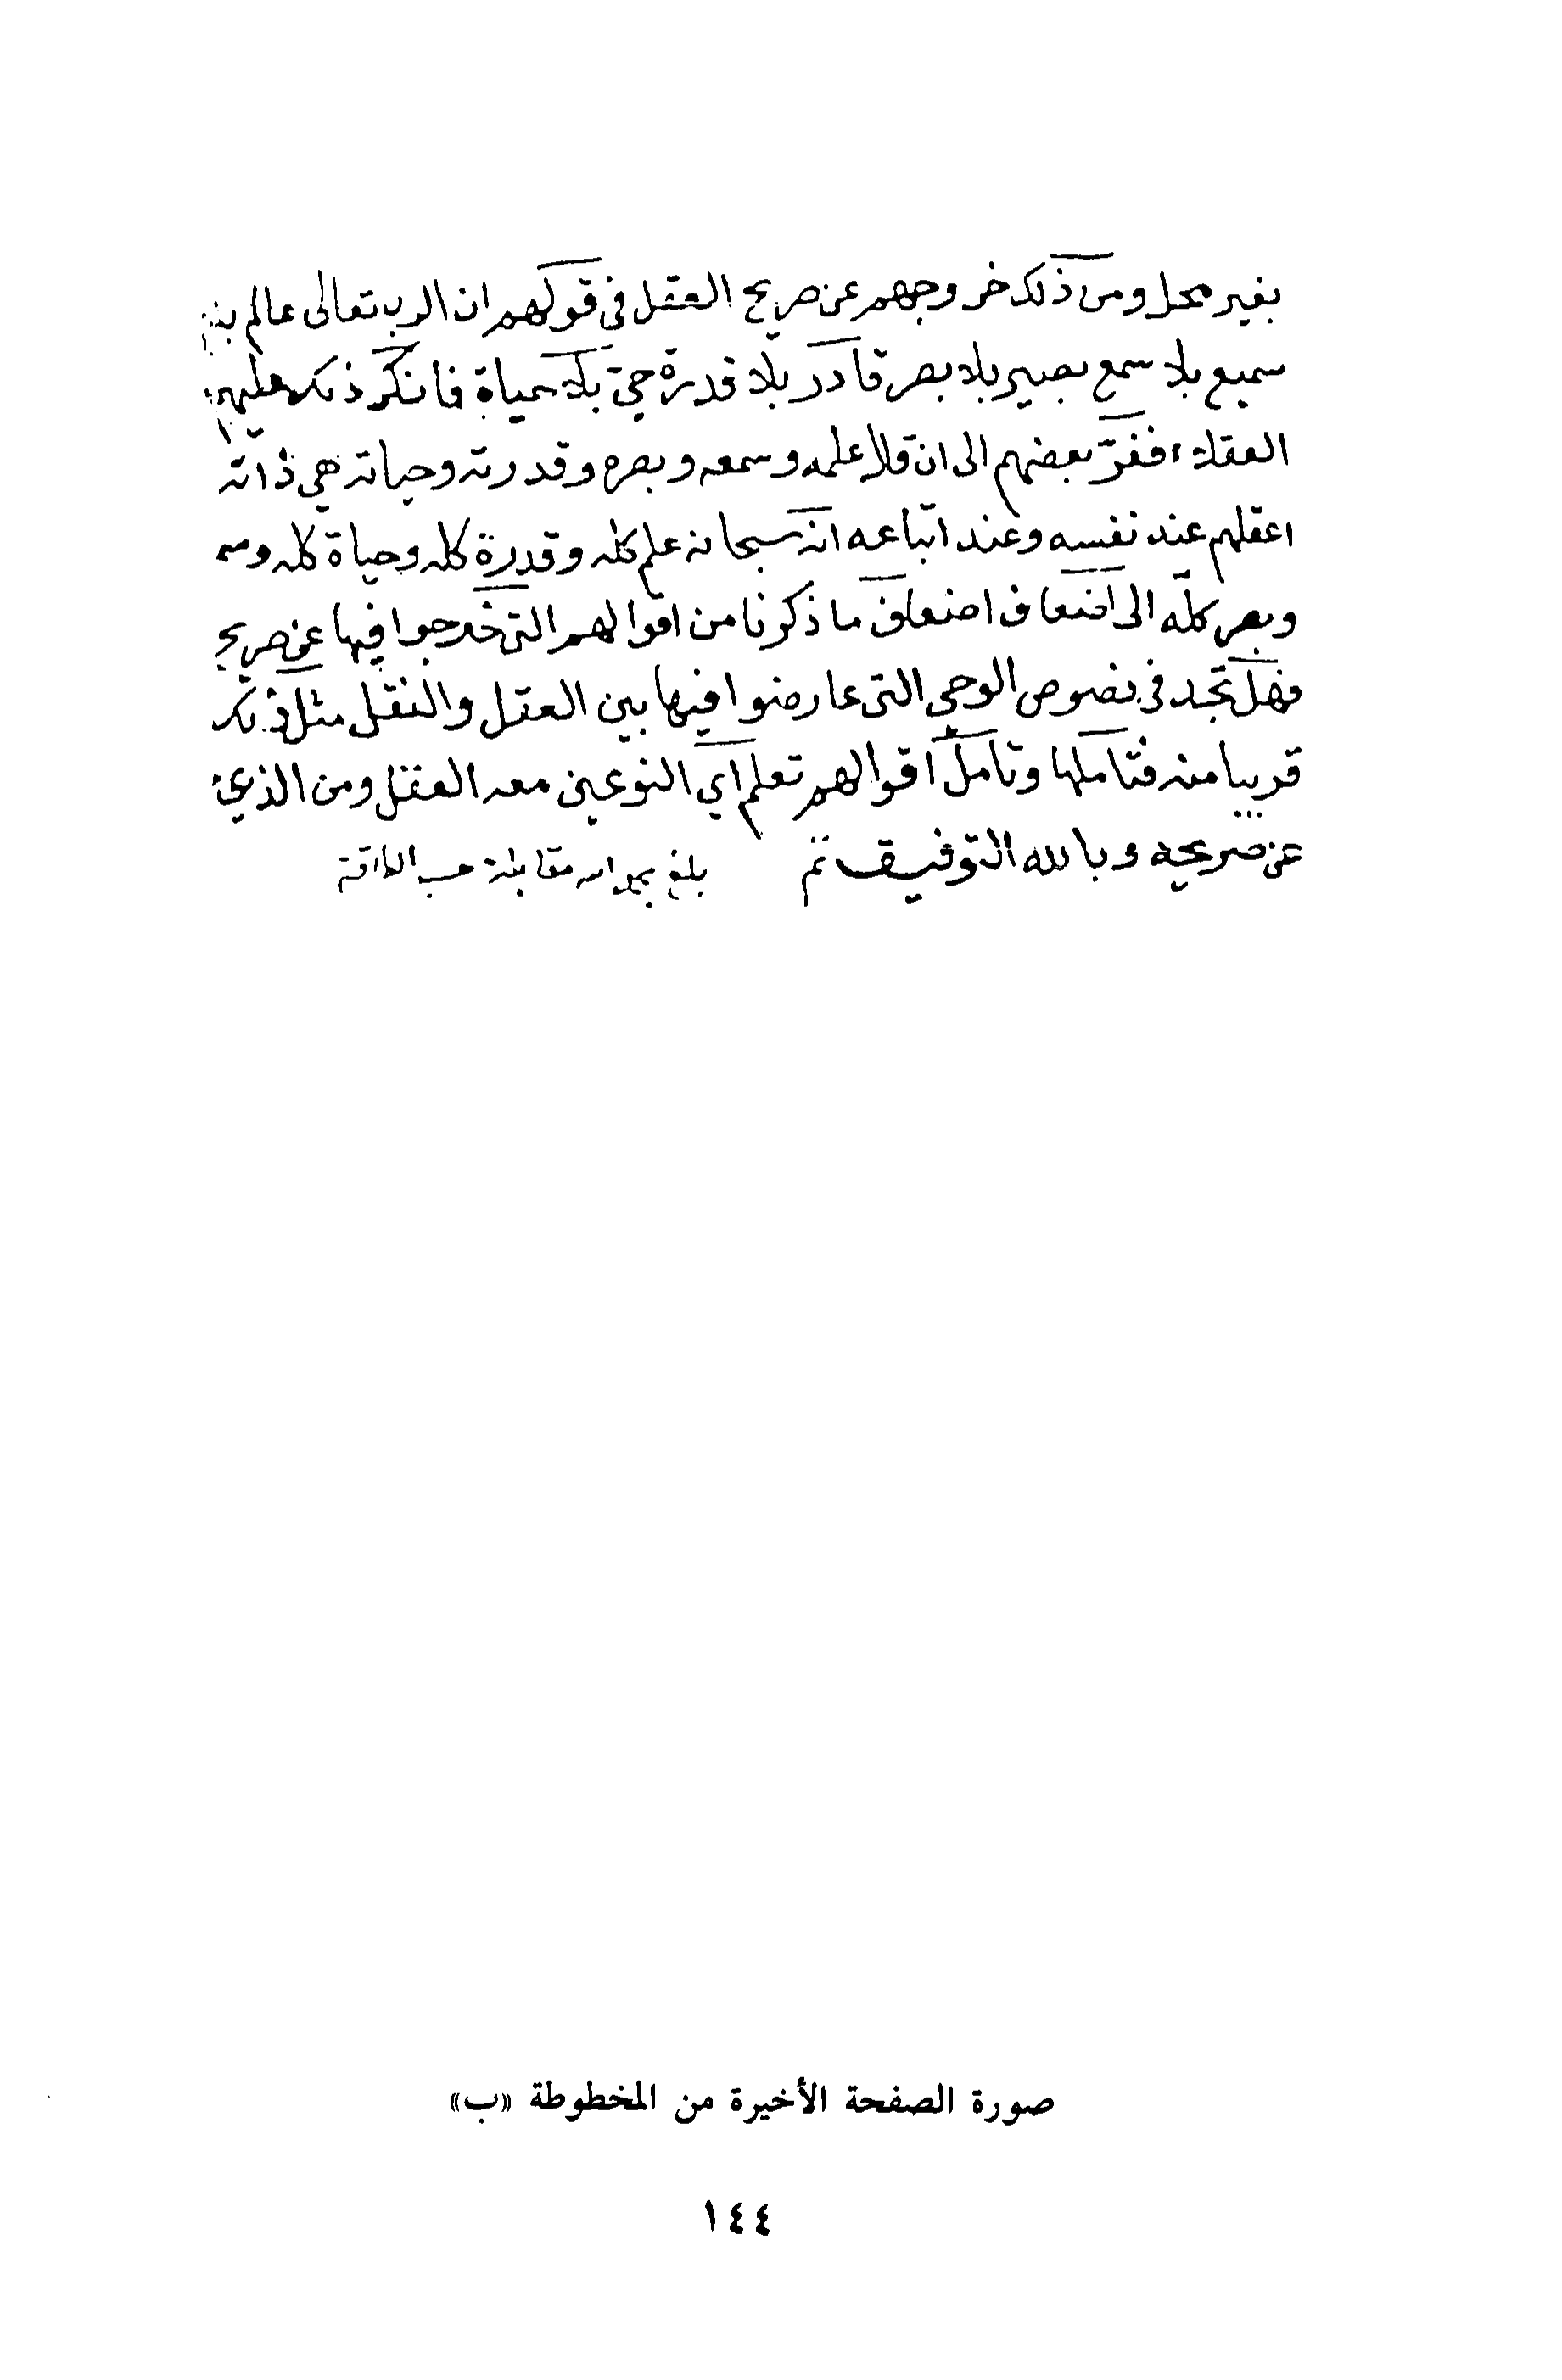 بغير محل ومن ذلك خروجهم عن صريح العقل في قولهم ان الرب تعالى عالم
سميع بلا سمع بصير بلا بصر قادر بلا قدرة حي بلا حياة فانكر ذلك عليهم
العقلاء ففرّ بعضهم الى ان قال علمه وسمعه وبصره وقدرته وحياته هي ذاته
اعقلهم عند نفسه وعند اتباعه انه سبحانه علم كله وقدرة كله وحياة كله وسم
وبصر كلّه الى اضعاف اضعاف ما ذكرنا من اقوالهم التي خرجوا فيها عن صريح
فهل تجد في نصوص الوحي التي عارضوا فيها بين العقل والنقل مثل ذلك
قريبا منه فتاملها وتامل اقوالهم تعلم اي النوعين معه العقل ومن الذي
عن صريحه وبالله التوفيق تم بلغ بحمد الله مقابلة حسب الطاقة
صورة الصفحة الأخيرة من المخطوطة «ب»
١٤٤